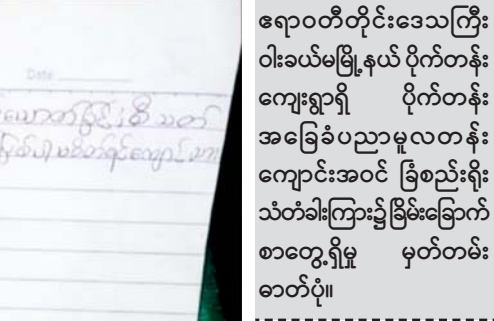 Date
ဧရာဝတီတိုင်းဒေသကြီး
ဝါးခယ်မမြို့နယ် ပိုက်တန်း
ကျေးရွာရှိ ပိုက်တန်း
အခြေခံပညာမူလတန်း
ကျောင်းအဝင် ခြံစည်းရိုး
သံတံခါးကြား၌ခြိမ်းခြောက်
စာတွေ့ရှိမှု မှတ်တမ်း
ဓာတ်ပုံ။